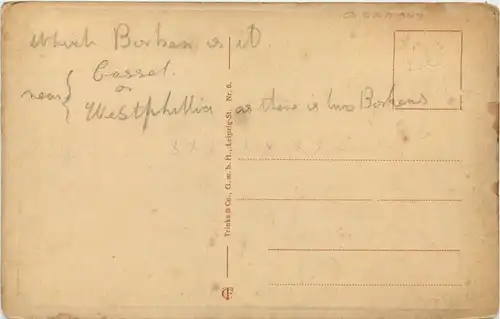 GERMANY
which Borken is it.
near { Cassel.
or
Westphillia as there is two Borkens
x x x x x x x x
Trinks & Co., G. m. b. H., Leipzig-St. Nr. 6.